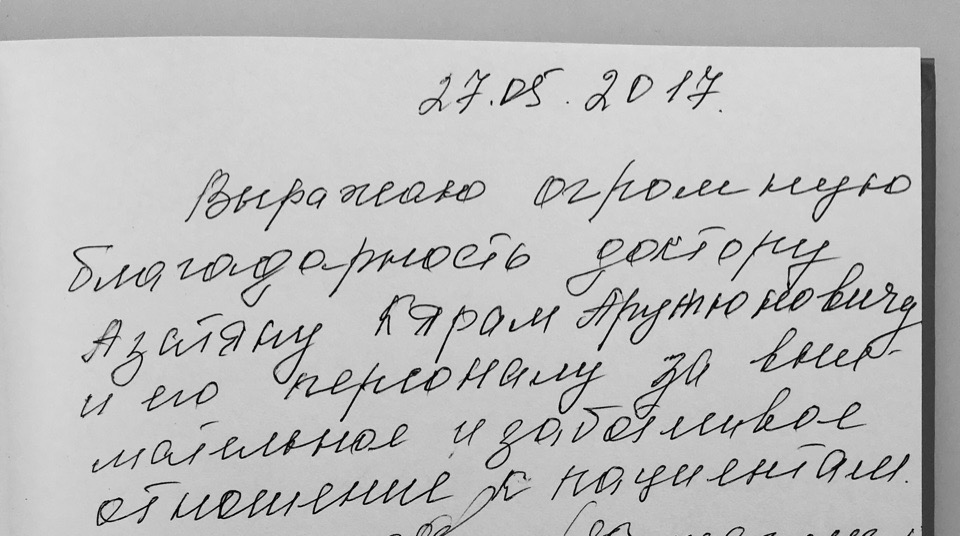 27.05.2017.
Выражаю огромную
благодарность доктору
Азатяну Кярам Аружюновичу
и его персоналу за вни-
мательное и заботливое
отношение к пациентам.